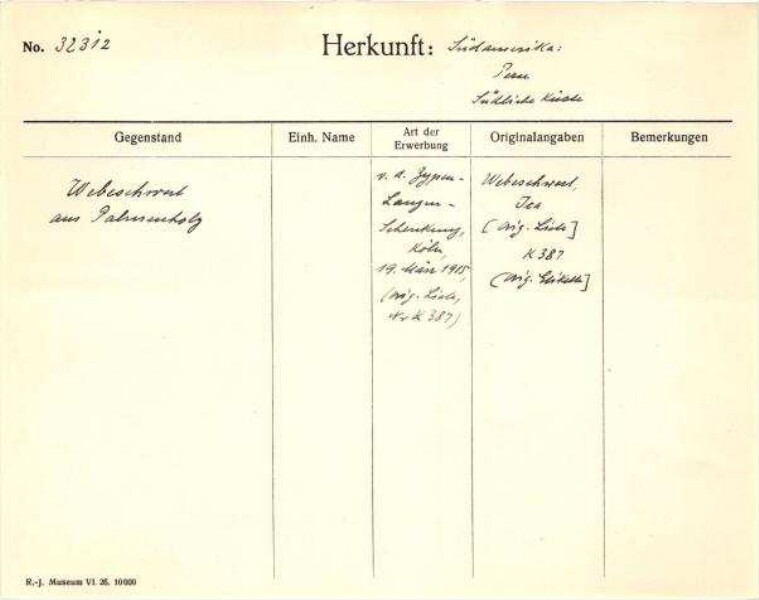 No. 32312
Herkunft: Südamerika:
Peru
Südliche Küste
Gegenstand
Einh. Name
Art der
Erwerbung
Originalangaben
Bemerkungen
Webeschwert
aus Palmenholz
v. d. Zypen-
Langen-
Schenkung,
Köln,
19. März 1915,
(Orig. Liste,
Nr K 387)
Webeschwert,
Ica
[Orig. Liste]
K 387
[Orig. Etikette]
R.-J. Museum VI. 26. 10000